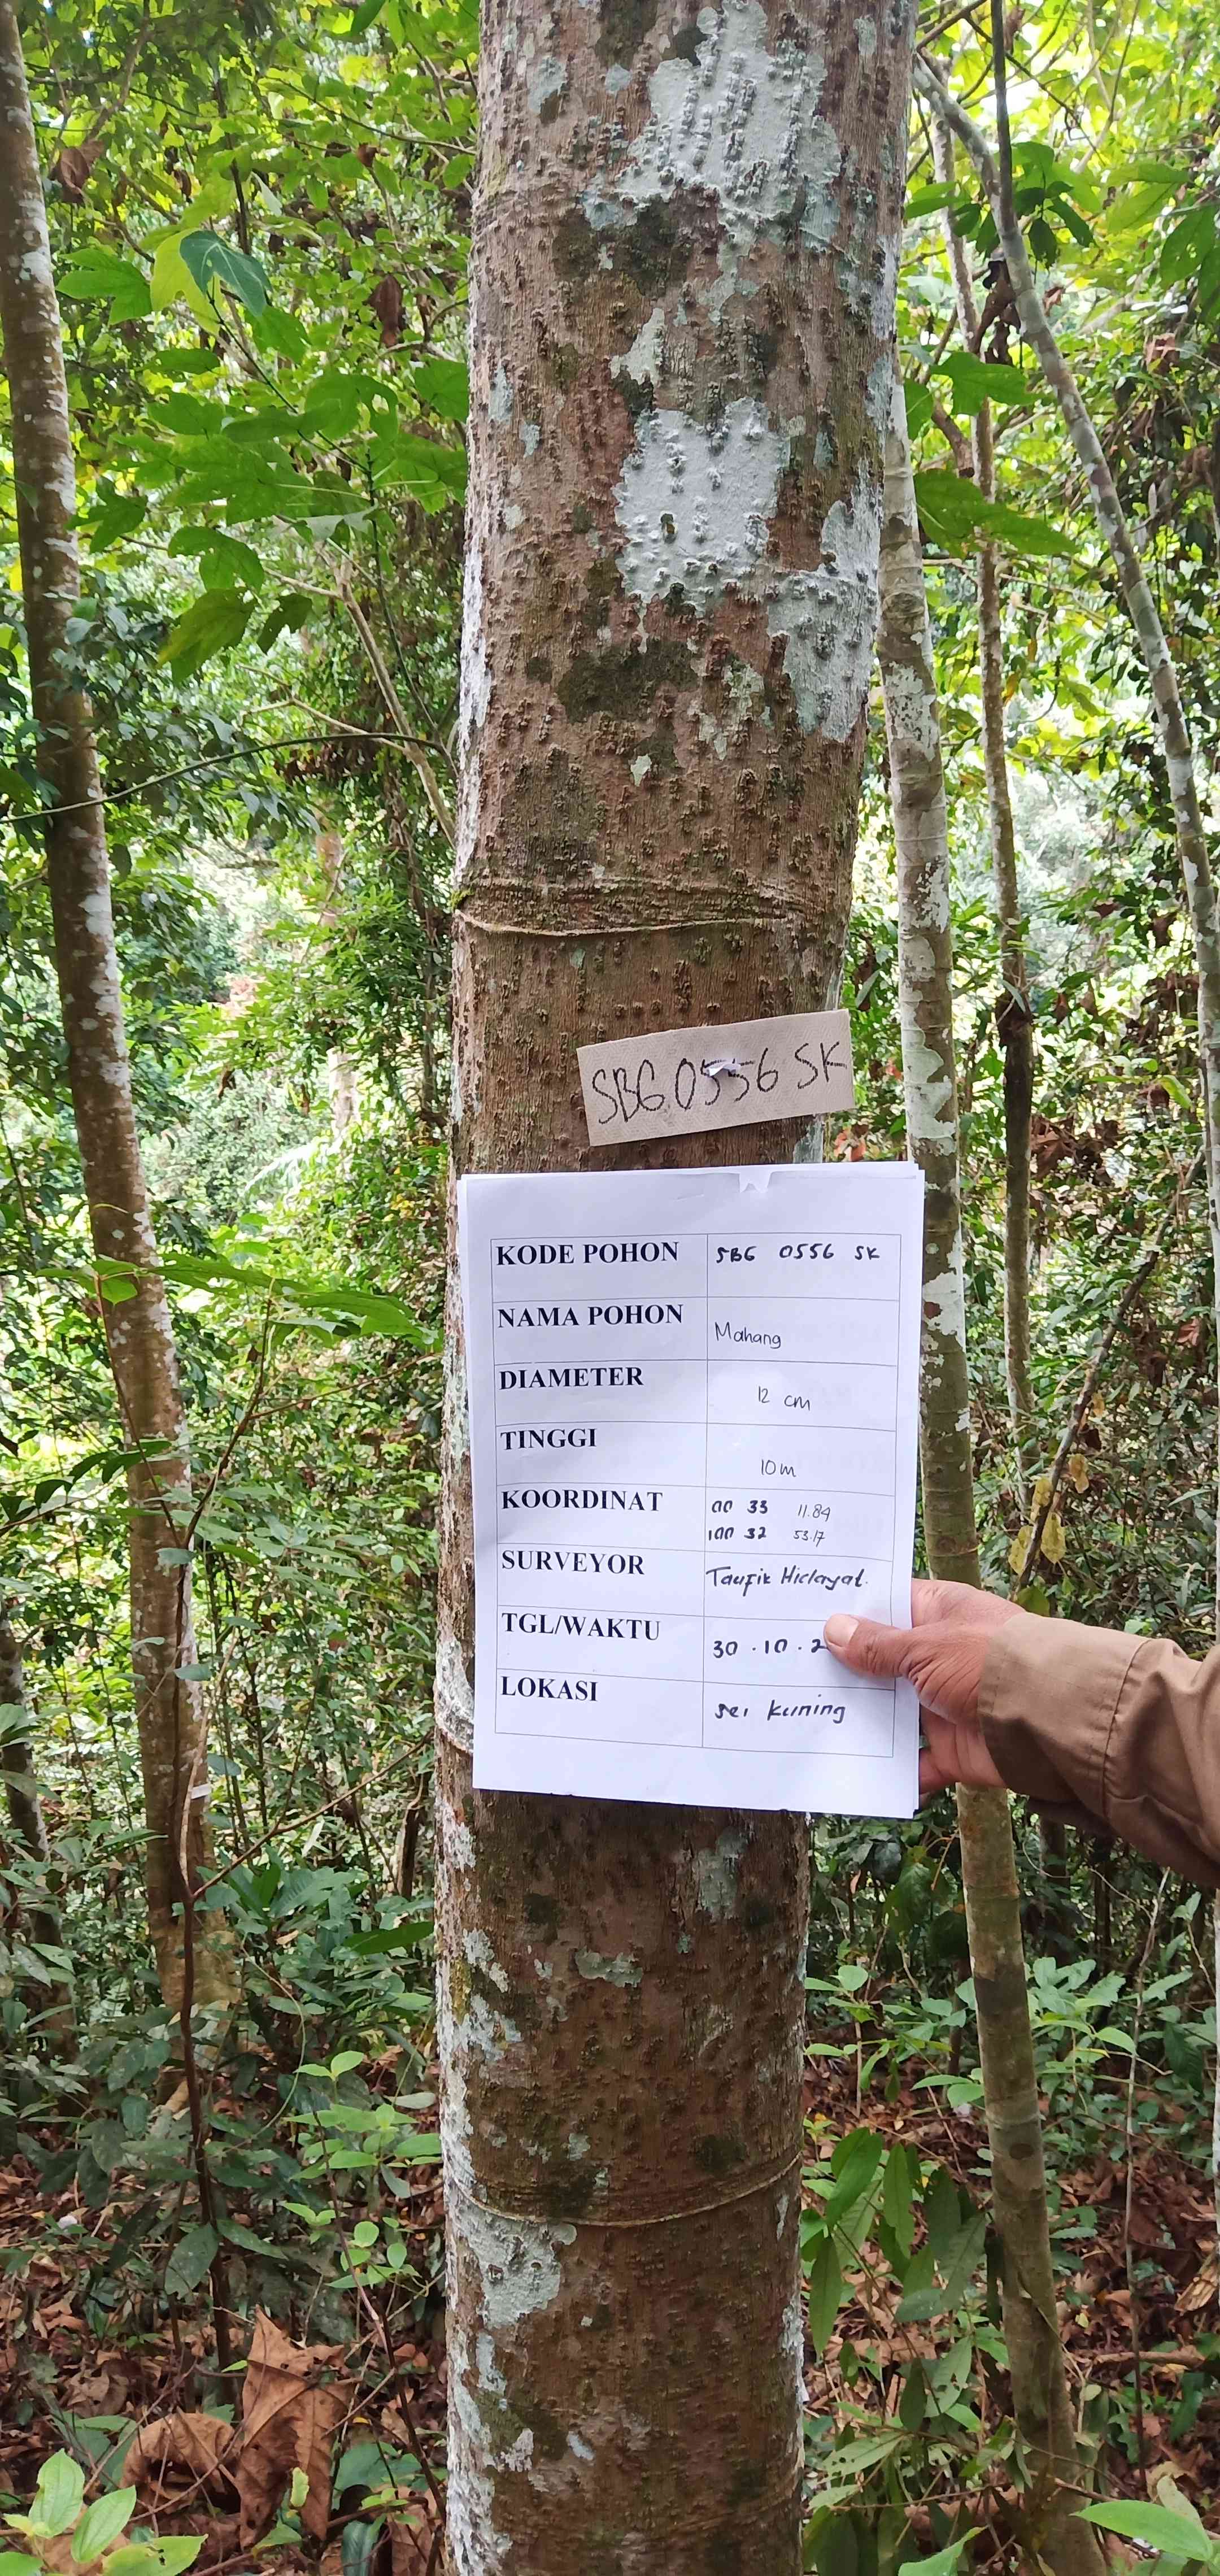 SBG 0556 SK
KODE POHON SBG 0556 SK
NAMA POHON Mahang
DIAMETER 12 cm
TINGGI 10 m
KOORDINAT 00 33 11.84
100 32 53.17
SURVEYOR Taufik Hidayat.
TGL/WAKTU 30 . 10 . 2
LOKASI sei kuning